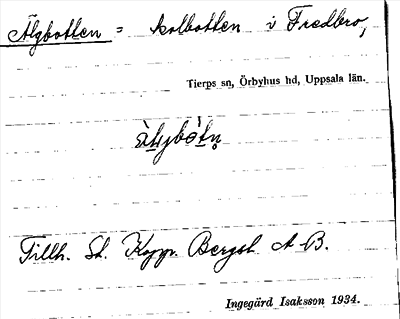 Älgbotten = kolbotten i Fredbro,
Tierps sn, Örbyhus hd, Uppsala län.
Tillh. St. Kopp. Bergsl. A B.
Ingegärd Isaksson 1934.